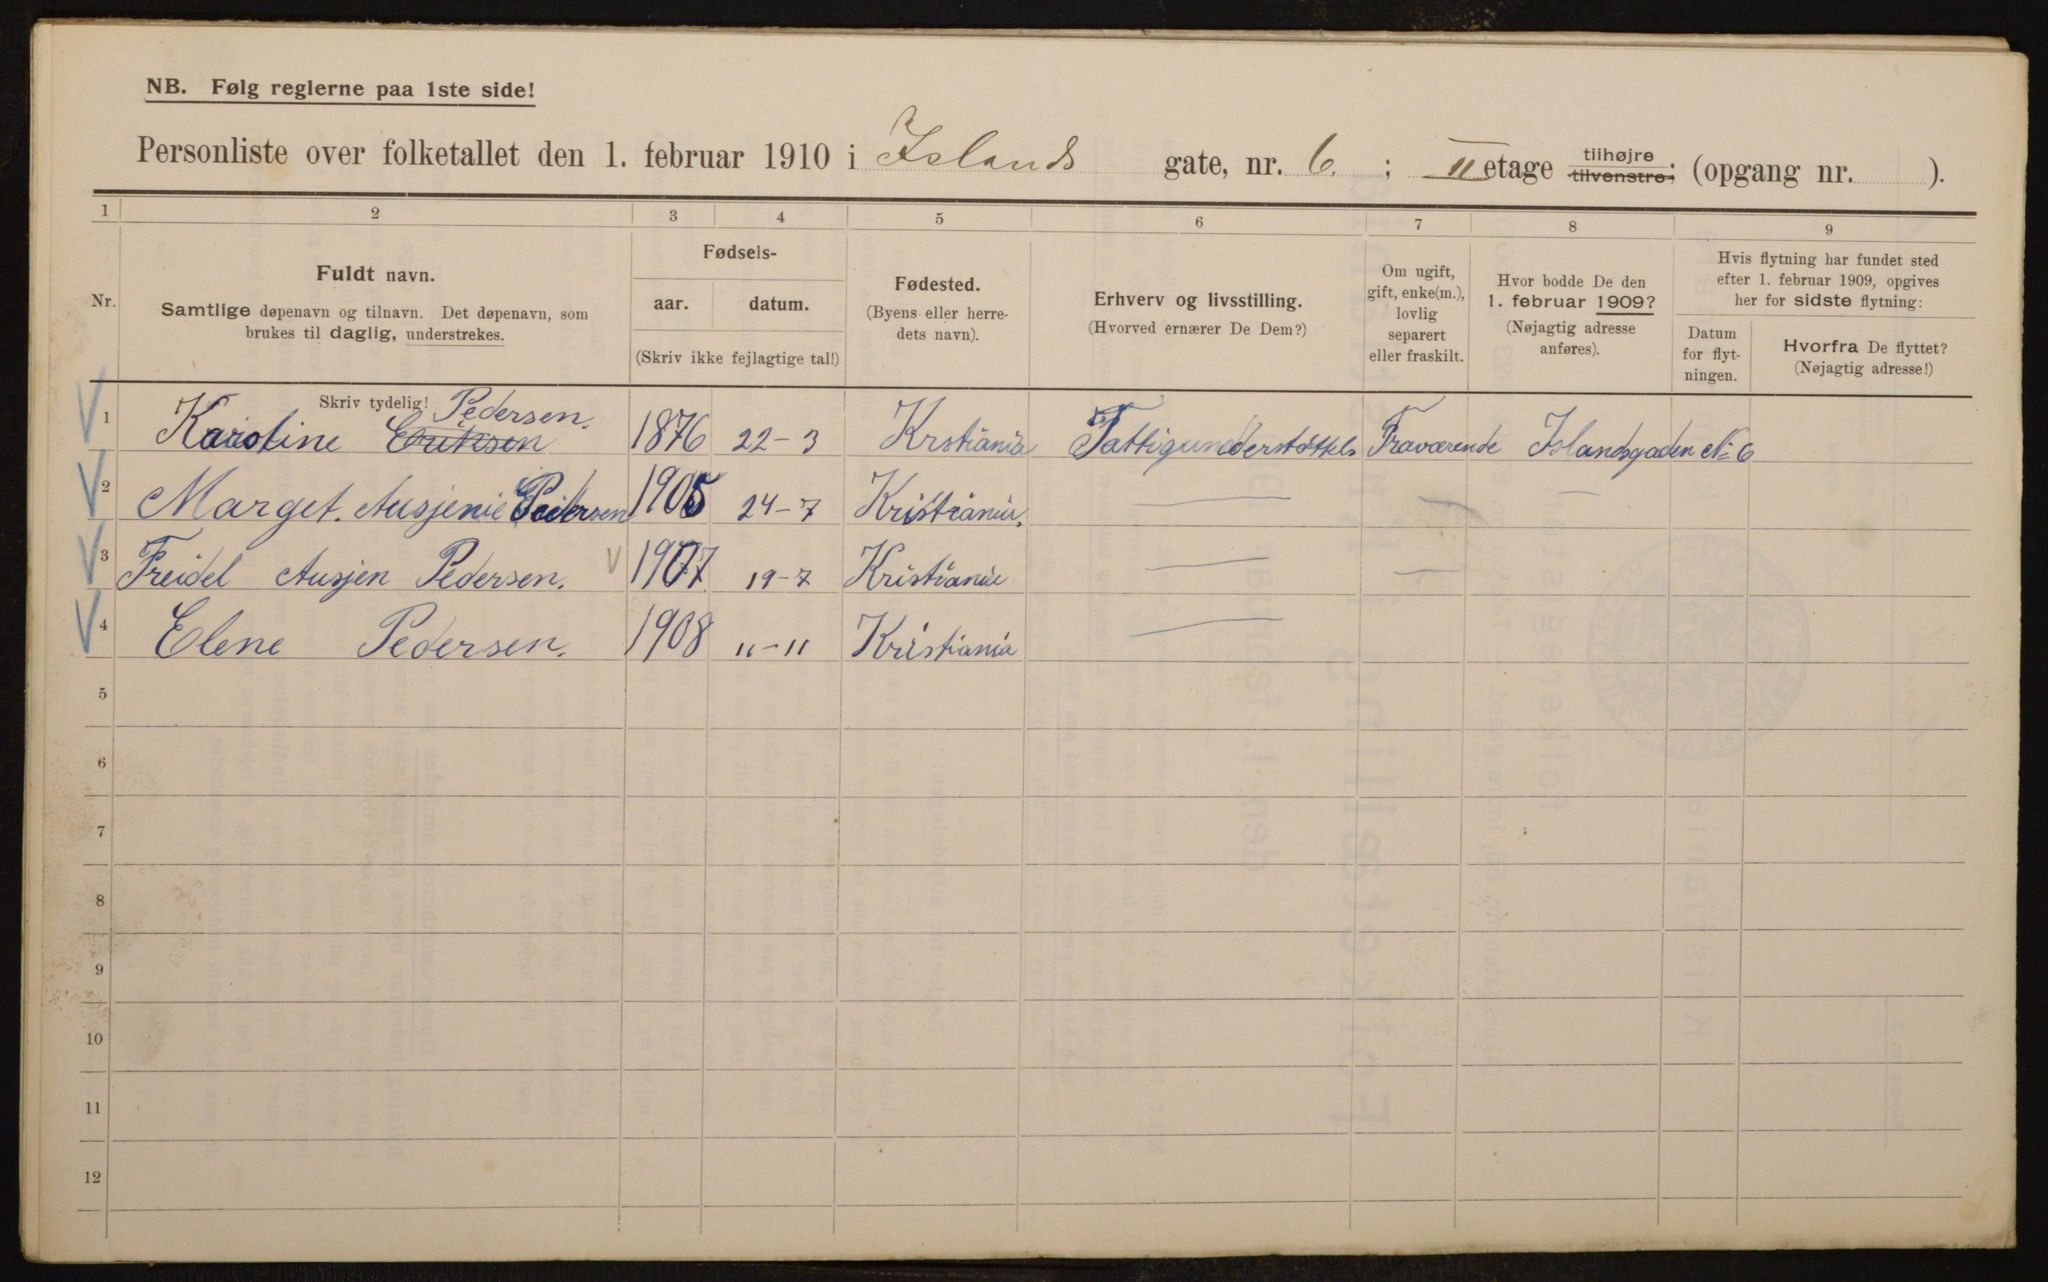 NB. Følg reglerne paa 1ste side!
Personliste over folketallet den 1. februar 1910 i Islands gate, nr. 6. ; II etage tilhøjre tilvenstre; (opgang nr. ).
1 2 3 4 5 6 7 8 9
Nr.
Fuldt navn.
Samtlige døpenavn og tilnavn. Det døpenavn, som
brukes til daglig, understrekes.
Skriv tydelig!
Fødsels-
aar. datum.
(Skriv ikke fejlagtige tal!)
Fødested.
(Byens eller herre-
dets navn).
Erhverv og livsstilling.
(Hvorved ernærer De Dem?)
Om ugift,
gift, enke(m.),
lovlig
separert
eller fraskilt.
Hvor bodde De den
1. februar 1909?
(Nøjagtig adresse
anføres).
Hvis flytning har fundet sted
efter 1. februar 1909, opgives
her for sidste flytning:
Datum
for flyt-
ningen.
Hvorfra De flyttet?
(Nøjagtig adresse!)
Pedersen.
1 Karoline 1876 22-3 Krstiania Fattigunderstøttels Fraværende Islandsgaden No 6
2 Marget. Ausjenie Pedersen 1905 24-7 Kristiania.
3 Freidel Ausjen Pedersen. 1907 19-7 Kristiania
4 Elene Pedersen. 1908 11-11 Kristiania
5
6
7
8
9
10
11
12